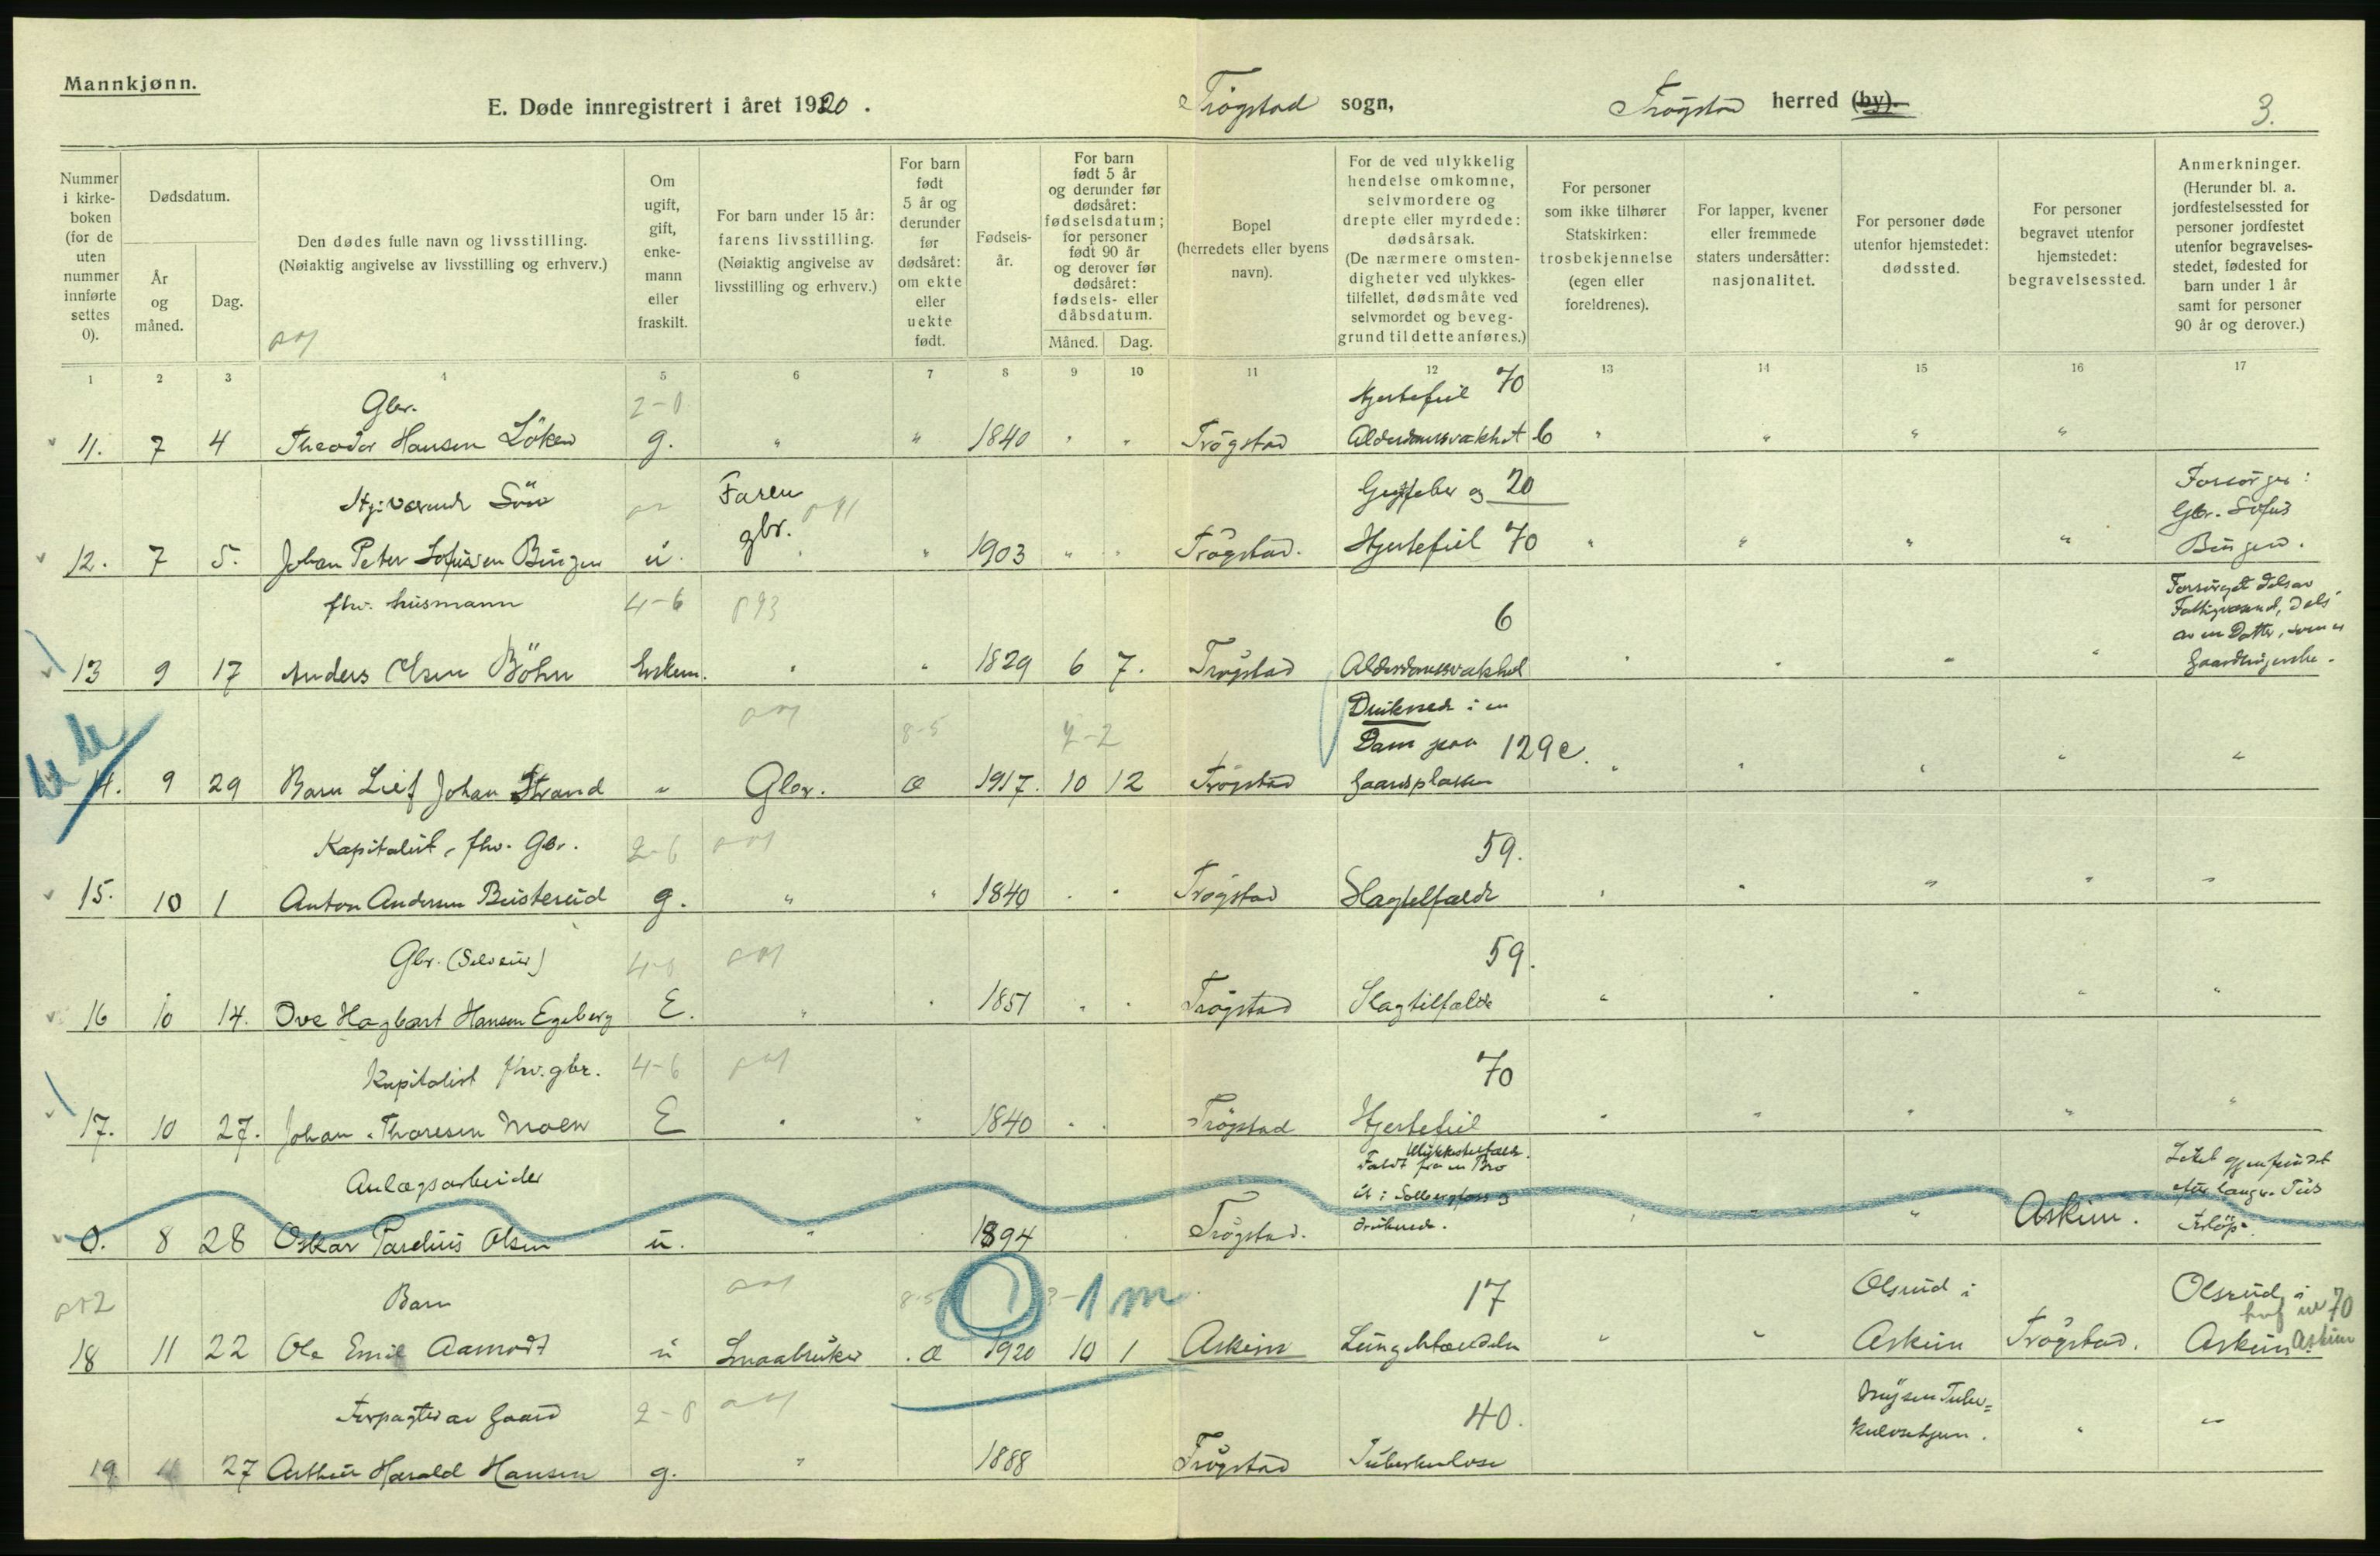 Mannkjønn.
E. Døde innregistrert i året 1920. Trögstad sogn, Trögstad herred (by). 3.
Nummer i kirkeboken (for de uten nummer innførte settes 0).
Dødsdatum.
År og måned.
Dag.
Den dødes fulle navn og livsstilling.
(Nøiaktig angivelse av livsstilling og erhverv.)
Om ugift, gift, enkemann eller fraskilt.
For barn under 15 år: farens livsstilling. (Nøiaktig angivelse av livsstilling og erhverv.)
For barn født 5 år og derunder før dødsåret: om ekte eller uekte født.
Fødselsår.
For barn født 5 år og derunder før dødsåret: fødselsdatum; for personer født 90 år og derover før dødsåret: fødsels- eller dåbsdatum.
Måned. Dag.
Bopel (herredets eller byens navn).
For de ved ulykkelig hendelse omkomne, selvmordere og drepte eller myrdede: dødsårsak. (De nærmere omstendigheter ved ulykkestilfellet, dødsmåte ved selvmordet og beveggrund til dette anføres.)
For personer som ikke tilhører Statskirken: trosbekjennelse (egen eller foreldrenes).
For lapper, kvener eller fremmede staters undersåtter: nasjonalitet.
For personer døde utenfor hjemstedet: dødssted.
For personer begravet utenfor hjemstedet: begravelsessted.
Anmerkninger.
(Herunder bl. a. jordfestelsessted for personer jordfestet utenfor begravelsesstedet, fødested for barn under 1 år samt for personer 90 år og derover.)
1 2 3 4 5 6 7 8 9 10 11 12 13 14 15 16 17
Gbr. 2-0 Hjertefeil 70
11. 7 4 Theodor Hansen Löken g. " " 1840 " " Trögstad Alderdomssvakhet 6 " " " "
Hjeværende Sön Faren Gigtfeber og 20 Forsörger:
gbr. Gbr. Sofus
12. 7 5. Johan Peter Sofusen Bingen u. " 1903 " " Trögstad. Hjertefeil 70 " " " " Bingen.
fhv. husmann 4-6 Forsörget dels av
6 Fattigvæsenet, dels
av en Datter, som er
13 9 17 Anders Olsen Böhn Enkem. " " 1829 6 7. Trögstad Alderdomssvakhet " " " " Gaardbrugerske.
Druknede i en
8-5 2-2 Dam paa 129e.
14. 9 29 Barn Leif Johan Strand " Gbr. Æ 1917. 10 12 Trögstad Gaardsplassen " " " " "
Kapitalist, fhv. Gbr. 2-6 59.
15. 10 1 Anton Andersen Busterud g. " " 1840 " " Trögstad Slagtilfælde " " " " "
Gbr. (Selveier) 4-0 59.
16 10 14. Ove Hagbart Hansen Egeberg E. " " 1851 " " Trögstad Slagtilfælde " " " " "
Kapitalist fhv. gbr. 4-6 70
17. 10 27. Johan Thoresen Moen E " " 1840 " " Trögstad Hjertefeil " " " " "
Ulykkestilfælde.
Anlægsarbeider Faldt fra en Bro Liket gjenfundet
ut i Solbergfoss og efter længre Tids
0. 8 28 Oskar Parelius Olsen u. " 1894 Trögstad. druknede. " " " Askim. Forløp.
Barn 8-5 3-1 m 17 Olsrud i Olsrud i
70
18 11 22 Ole Emil Aamodt u Smaabruker Æ 1920 10 1 Askim Lungebetændelse " " Askim Trögstad. Askim Askim
Forpagter av Gaard 2-0 40. Mysen Tuber=
kulosehjem. " "
19. 11 27 Arthur Harald Hansen g. " 1888 Trögstad Tuberkulose